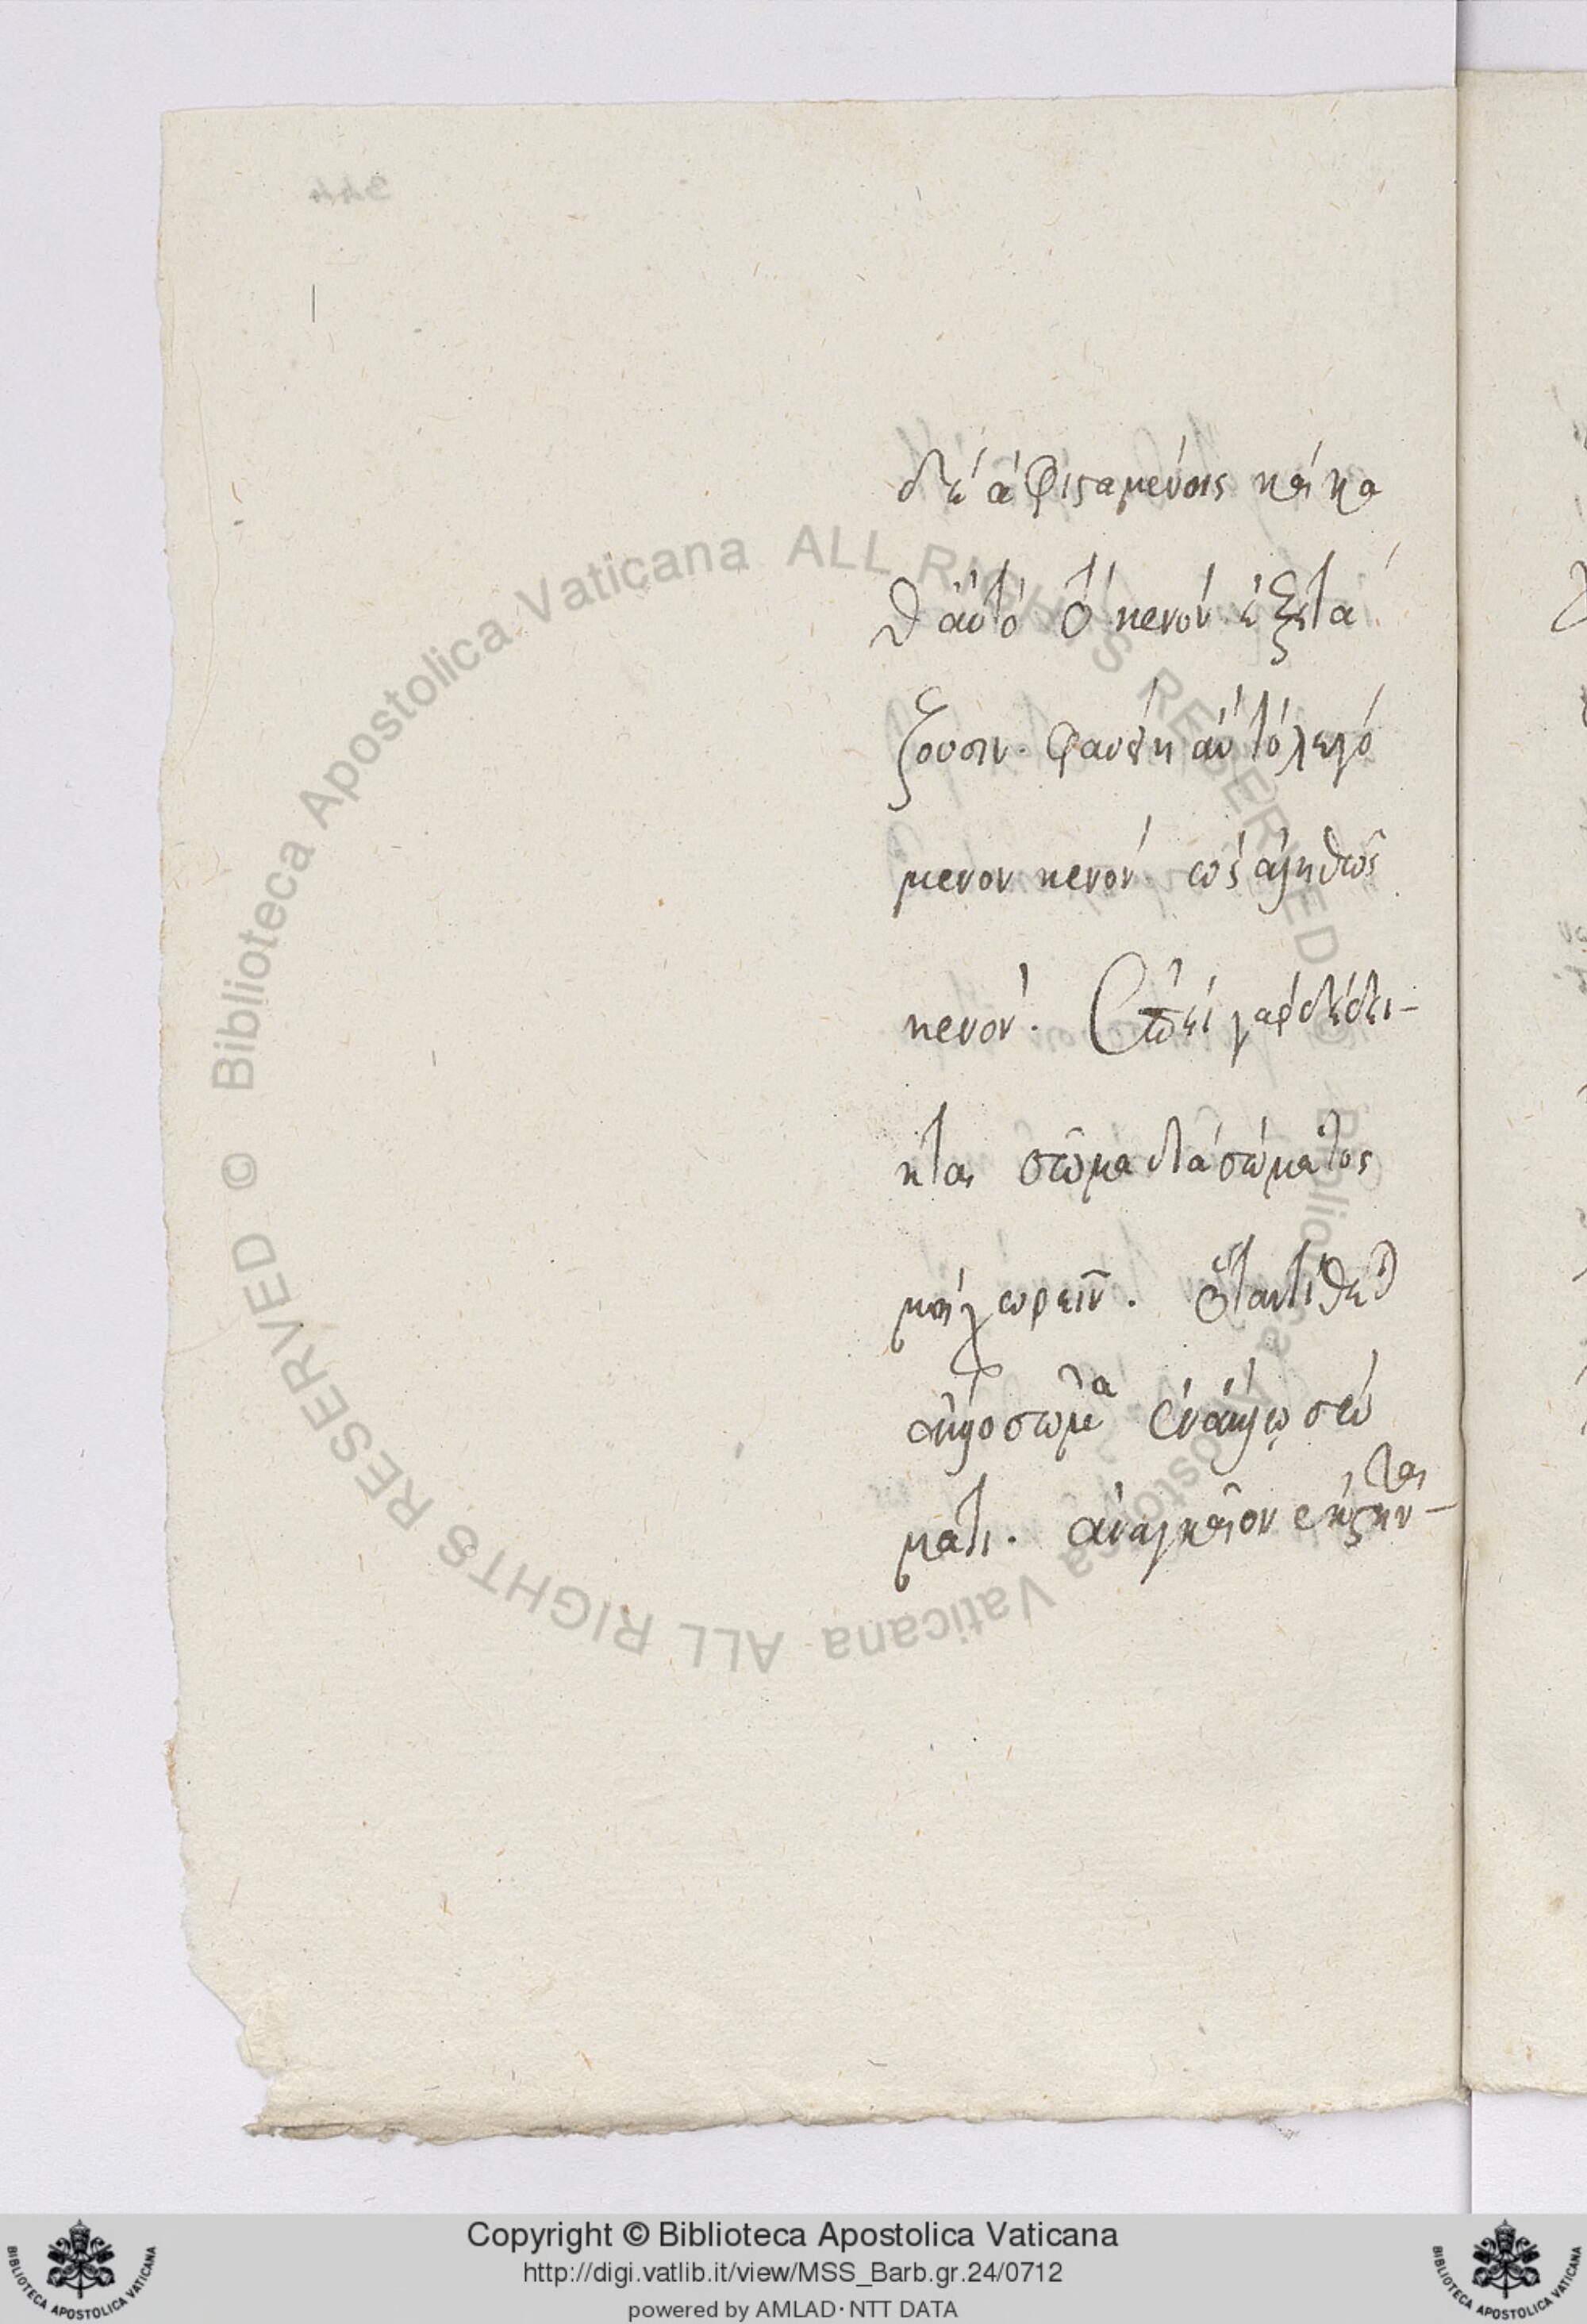 δὲ ἀφισαμένοις καὶ κα
θ αὑτὸ τὸ κενὸν ἐξετά
ζουσιν. φανείη ἂν τὸ λεγό
μενον κενὸν ὡς ἀληθῶς
κενόν. Ἐπεὶ γὰρ δέδει-
κται σῶμα διὰ σώματος
μὴ χωρεῖν. ὅταν τεθῇ
ἄλλο σῶμα ἐν ἄλλῳ σώ
ματι. ἀναγκαῖον ἐκστῆν-
αι
Biblioteca Apostolica Vaticana ALL RIGHTS RESERVED ©
Biblioteca Apostolica Vaticana ALL RIGHTS RESERVED ©
Copyright © Biblioteca Apostolica Vaticana
http://digi.vatlib.it/view/MSS_Barb.gr.24/0712
powered by AMLAD·NTT DATA
BIBLIOTECA APOSTOLICA VATICANA
BIBLIOTECA APOSTOLICA VATICANA